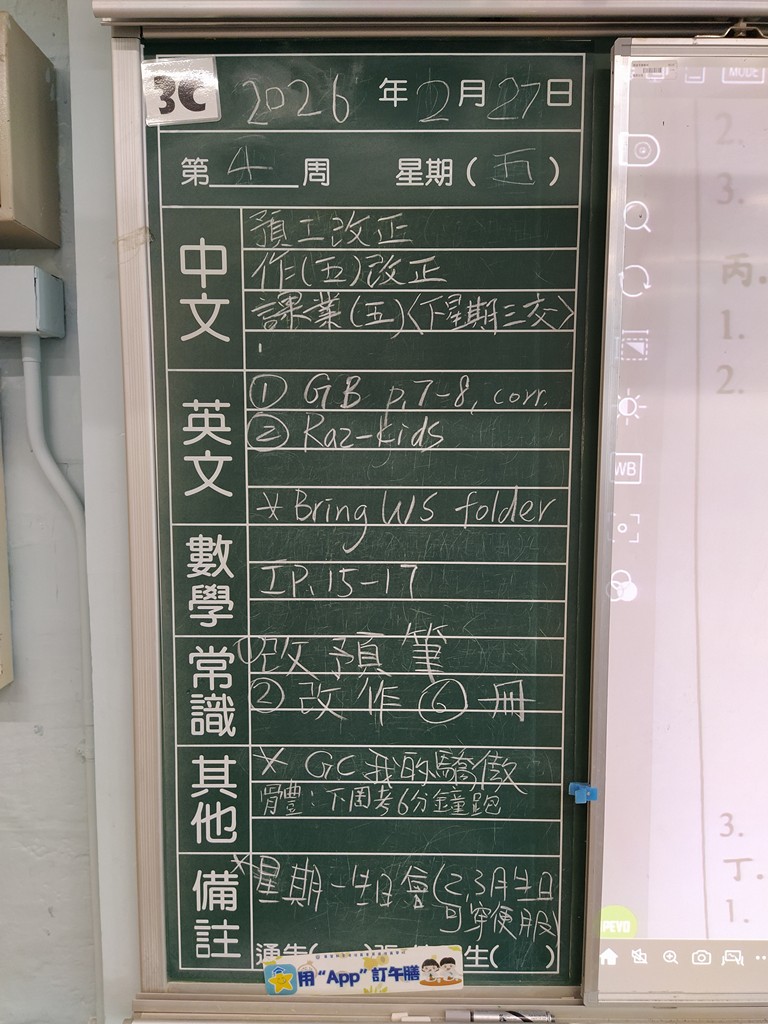 3C
2026年2月27日
第4周 星期(五)
中文
預工改正
作(五)改正
課業(五)〈下星期三交〉
英文
① GB p.7-8, corr.
② Raz-kids
* Bring WS folder
數學
IP.15-17
常識
①改預筆
②改作⑥冊
其他
* GC我的驕傲
體:下周考6分鐘跑
備註
*星期一生日會(2,3月生日
可穿便服)
通告( 生( )
用“App”訂午膳
MODE
2.
3.
丙.
1.
2.
WB
3.
丁.
1.
PEVO